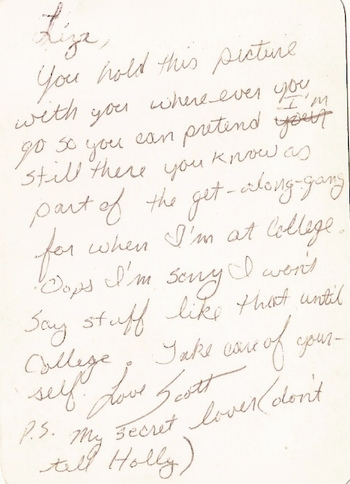 Liza,
You hold this picture
with you where-ever you
go so you can pretend your I'm
still there you know as
part of the get-along-gang
for when I'm at College.
Oops I'm sorry I won't
say stuff like that until
College. Take care of your-
self. Love Scott
P.S. My secret lover (don't
tell Holly)